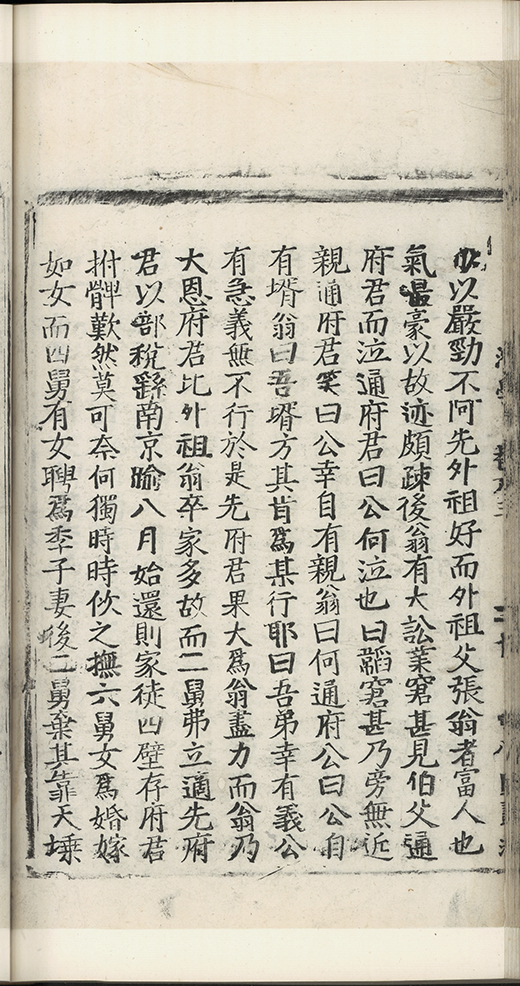 以嚴勁不阿先外祖好而外祖父張翁者富人也
氣最豪以故迹頗疎後翁有大訟業窘甚見伯父通
府君而泣通府君曰公何泣也曰韜窘甚乃旁無近
親通府君笑曰公幸自有親翁曰何通府公曰公自
有壻翁曰吾壻方其肯爲某行耶曰吾弟幸有義公
有急義無不行於是先府君果大爲翁盡力而翁乃
大恩府君比外祖翁卒家多故而二舅弗立適先府
君以部稅繇南京踰八月始還則家徒四壁存府君
拊髀歎然莫可奈何獨時時佽之撫六舅女爲婚嫁
如女而四舅有女聘爲季子妻後二舅棄其靠天壈